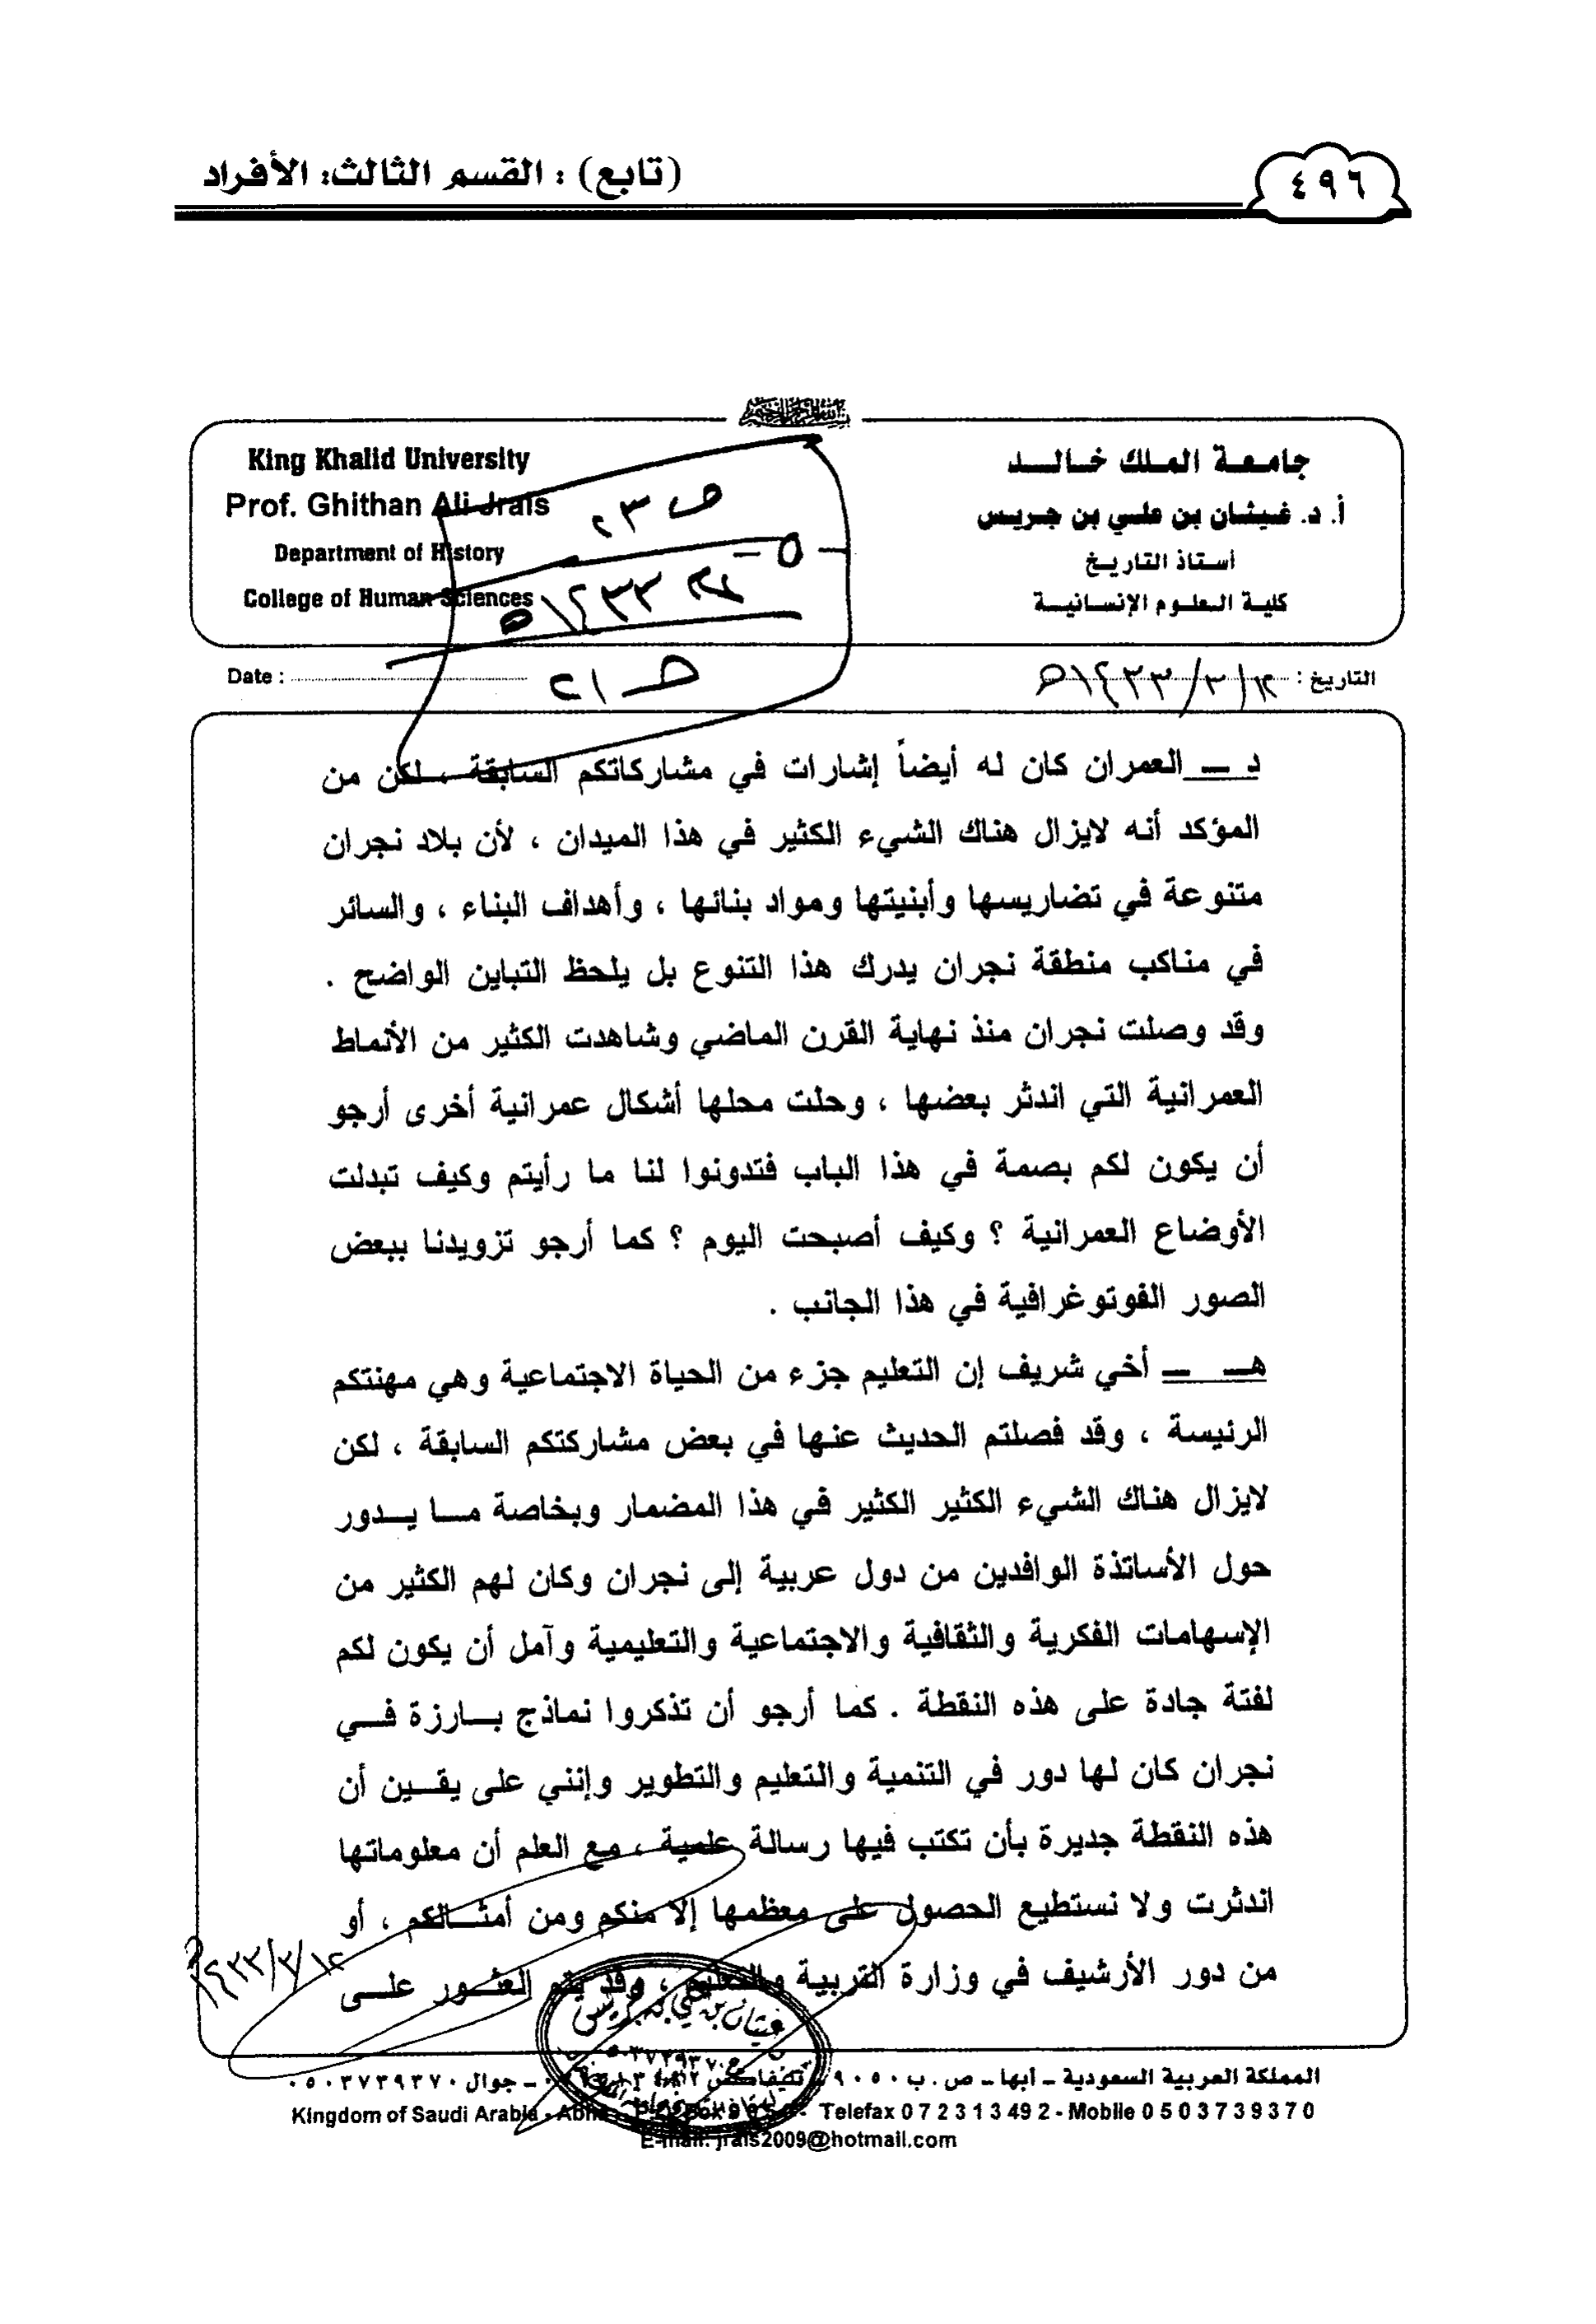 ٤٩٦
(تابع) : القسم الثالث: الأفراد
جامعة الملك خالد
أ. د. غيثان بن علي بن جريس
أستاذ التاريخ
كلية العلوم الإنسانية
King Khalid University
Prof. Ghithan Ali Jrais
Department of History
College of Human Sciences
ص ٢٣
- ٥ -
١٤٣٣هـ
ص ٢١
التاريخ : /٣/١٤٣٣هـ
Date :
د ــ العمران كان له أيضاً إشارات في مشاركاتكم السابقة ، لكن من
المؤكد أنه لايزال هناك الشيء الكثير في هذا الميدان ، لأن بلاد نجران
متنوعة في تضاريسها وأبنيتها ومواد بنائها ، وأهداف البناء ، والسائر
في مناكب منطقة نجران يدرك هذا التنوع بل يلحظ التباين الواضح .
وقد وصلت نجران منذ نهاية القرن الماضي وشاهدت الكثير من الأنماط
العمرانية التي اندثر بعضها ، وحلت محلها أشكال عمرانية أخرى أرجو
أن يكون لكم بصمة في هذا الباب فتدونوا لنا ما رأيتم وكيف تبدلت
الأوضاع العمرانية ؟ وكيف أصبحت اليوم ؟ كما أرجو تزويدنا ببعض
الصور الفوتوغرافية في هذا الجانب .
هـ ــ أخي شريف إن التعليم جزء من الحياة الاجتماعية وهي مهنتكم
الرئيسة ، وقد فصلتم الحديث عنها في بعض مشاركتكم السابقة ، لكن
لايزال هناك الشيء الكثير الكثير في هذا المضمار وبخاصة مـا يـدور
حول الأساتذة الوافدين من دول عربية إلى نجران وكان لهم الكثير من
الإسهامات الفكرية والثقافية والاجتماعية والتعليمية وآمل أن يكون لكم
لفتة جادة على هذه النقطة . كما أرجو أن تذكروا نماذج بـارزة فـي
نجران كان لها دور في التنمية والتعليم والتطوير وإنني على يقـين أن
هذه النقطة جديرة بأن تكتب فيها رسالة علمية ، مع العلم أن معلوماتها
اندثرت ولا نستطيع الحصول على معظمها إلا منكم ومن أمثـالكم ، أو
من دور الأرشيف في وزارة التربية والتعليم ، وقد يتم العثـور علـى
غيثان بن علي بن جريس
المملكة العربية السعودية – أبها – ص . ب ٩٠٥٠ – تليفاكس – جوال ٠٥٠٣٧٣٩٣٧٠
Kingdom of Saudi Arabia - Abha - P.O. Box 9050 - Telefax 0 7 2 3 1 3 49 2 - Mobile 0 5 0 3 7 3 9 3 7 0
E-mail: jrais2009@hotmail.com